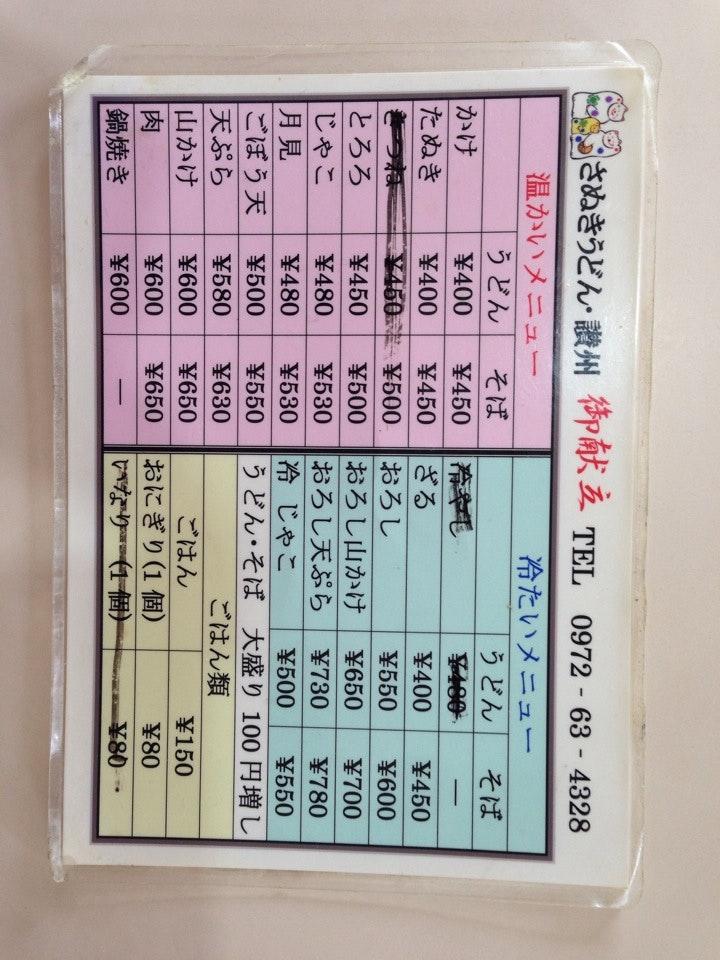 さぬきうどん・讃州 御献立 TEL 0972-63-4328
温かいメニュー
うどん そば
かけ ¥400 ¥450
たぬき ¥400 ¥450
きつね ¥450 ¥500
とろろ ¥450 ¥500
じゃこ ¥480 ¥530
月見 ¥480 ¥530
ごぼう天 ¥500 ¥550
天ぷら ¥580 ¥630
山かけ ¥600 ¥650
肉 ¥600 ¥650
鍋焼き ¥600 —
冷たいメニュー
うどん そば
冷やし ¥480 —
ざる ¥400 ¥450
おろし ¥550 ¥600
おろし山かけ ¥650 ¥700
おろし天ぷら ¥730 ¥780
冷 じゃこ ¥500 ¥550
うどん・そば 大盛り 100円増し
ごはん類
ごはん ¥150
おにぎり(1個) ¥80
いなり(1個) ¥80